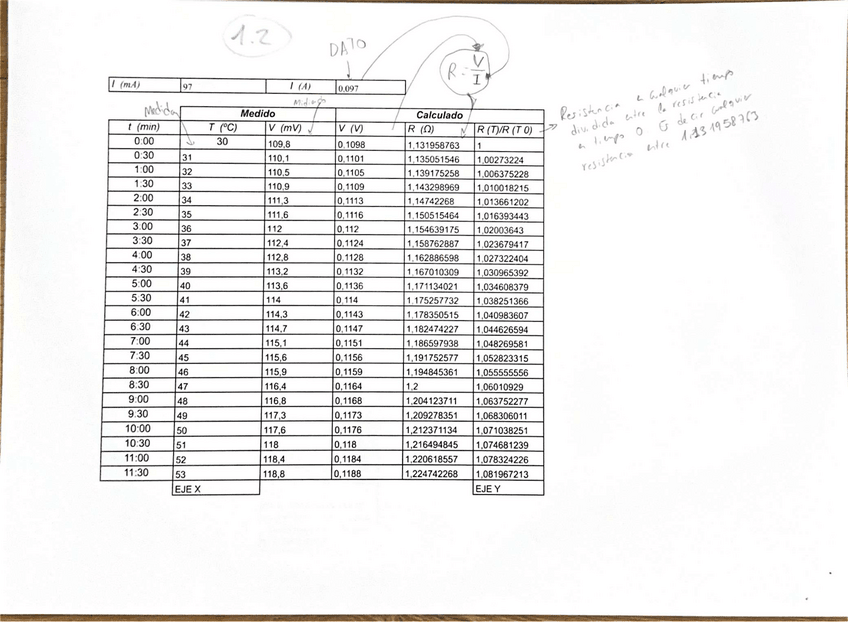 1.2
DATO
R = V/I
I (mA) 97 I (A) 0.097
Medidas Medimos
Resistencia a cualquier tiempo
dividida entre la resistencia
a tiempo 0 Es decir cualquier
resistencia entre 1.131958763
Medido Calculado
t (min) T (ºC) V (mV) V (V) R (Ω) R (T)/R (T 0)
0:00 30 109,8 0.1098 1,131958763 1
0:30 31 110,1 0,1101 1,135051546 1,00273224
1:00 32 110,5 0,1105 1,139175258 1,006375228
1:30 33 110,9 0,1109 1,143298969 1,010018215
2:00 34 111,3 0,1113 1,14742268 1,013661202
2:30 35 111,6 0,1116 1,150515464 1,016393443
3:00 36 112 0,112 1,154639175 1,02003643
3:30 37 112,4 0,1124 1,158762887 1,023679417
4:00 38 112,8 0,1128 1,162886598 1,027322404
4:30 39 113,2 0,1132 1,167010309 1,030965392
5:00 40 113,6 0,1136 1,171134021 1,034608379
5:30 41 114 0,114 1,175257732 1,038251366
6:00 42 114,3 0,1143 1,178350515 1,040983607
6:30 43 114,7 0,1147 1,182474227 1,044626594
7:00 44 115,1 0,1151 1,186597938 1,048269581
7:30 45 115,6 0,1156 1,191752577 1,052823315
8:00 46 115,9 0,1159 1,194845361 1,055555556
8:30 47 116,4 0,1164 1,2 1,06010929
9:00 48 116,8 0,1168 1,204123711 1,063752277
9:30 49 117,3 0,1173 1,209278351 1,068306011
10:00 50 117,6 0,1176 1,212371134 1,071038251
10:30 51 118 0,118 1,216494845 1,074681239
11:00 52 118,4 0,1184 1,220618557 1,078324226
11:30 53 118,8 0,1188 1,224742268 1,081967213
EJE X EJE Y